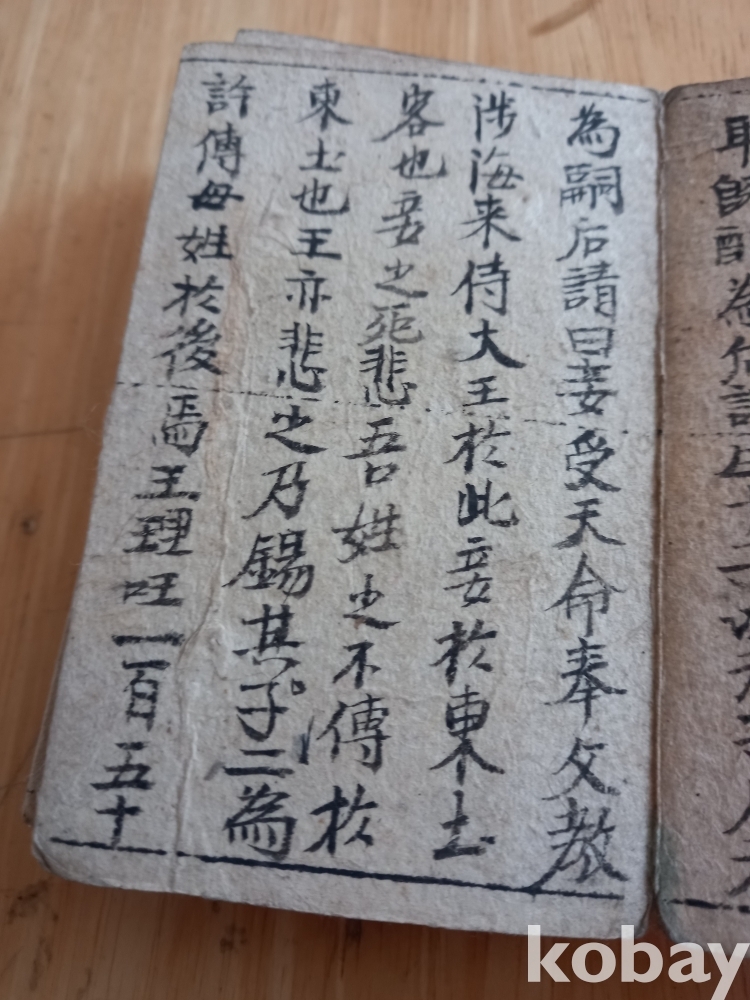 為嗣后請曰妾受天命奉父教
涉海来侍大王於此妾於東土
客也妾之死悲吾姓之不傳於
東土也王亦悲之乃錫其子二為
許傳母姓於後焉王理旺一百五十
kobay